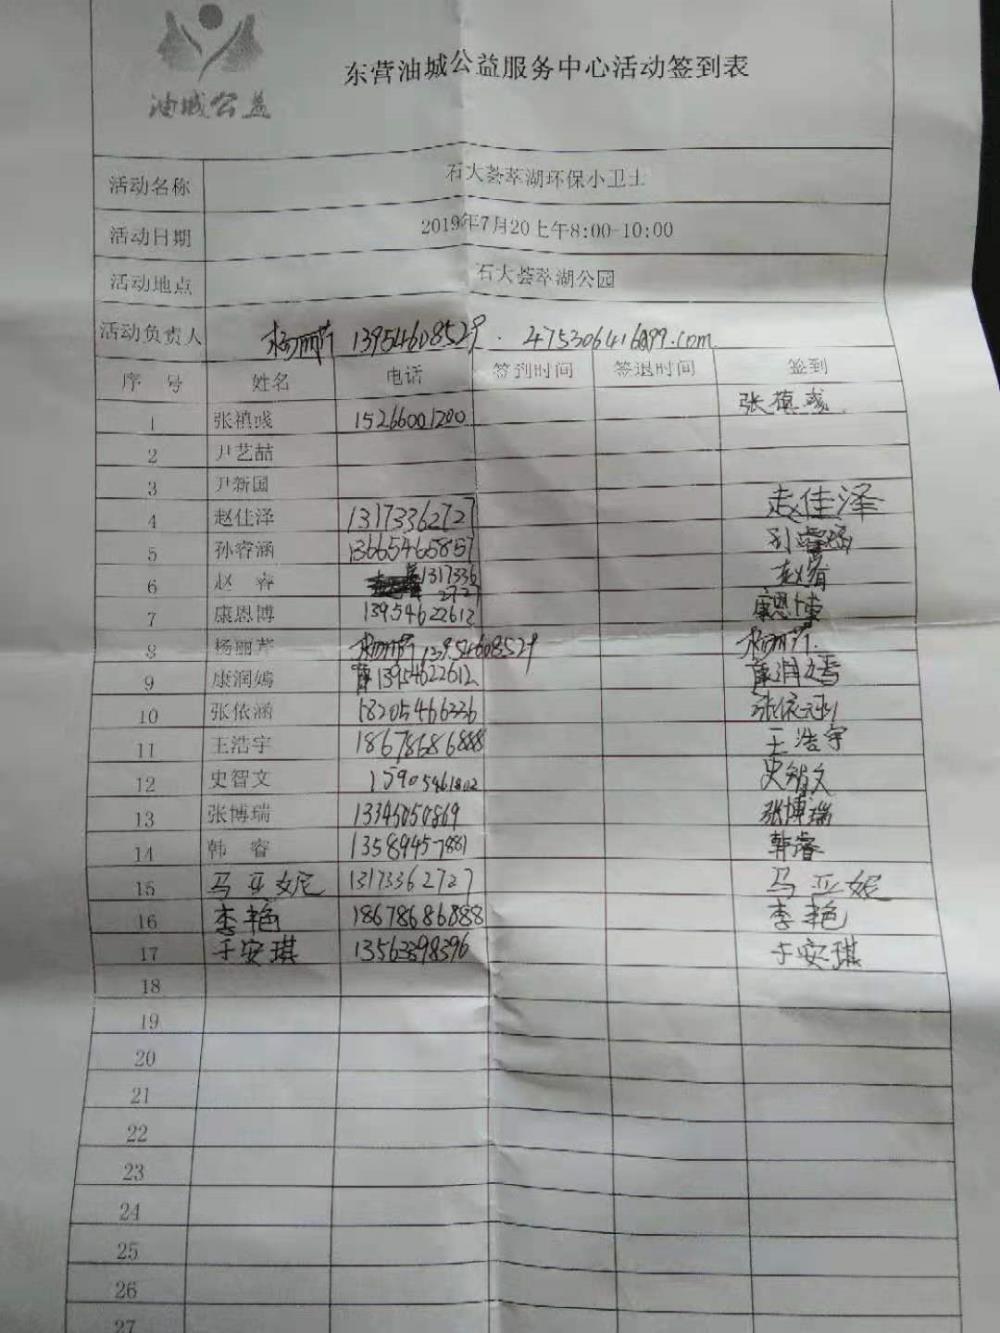 油城公益
东营油城公益服务中心活动签到表
活动名称 石大荟萃湖环保小卫士
活动日期 2019年7月20上午8:00-10:00
活动地点 石大荟萃湖公园
活动负责人 杨丽芹 13954608529 . 475306416@qq.com
序 号 姓名 电话 签到时间 签退时间 签到
1 张禛彧 15266001200 张禛彧
2 尹艺喆
3 尹新国
4 赵佳泽 13173362727 赵佳泽
5 孙睿涵 13665465857 孙睿涵
6 赵 睿 1317336 赵睿
2727
7 康恩博 13954622612 康恩博
8 杨丽芹 杨丽芹 13954608529 杨丽芹
9 康润嫣 13954622612 康润嫣
10 张依涵 18205466336 张依涵
11 王浩宇 18678686888 王浩宇
12 史智文 15905461802 史智文
13 张博瑞 13345050869 张博瑞
14 韩 睿 13589457881 韩睿
15 马亚妮 13173362727 马亚妮
16 李艳 18678686888 李艳
17 于安琪 13563398396 于安琪
18
19
20
21
22
23
24
25
26
27